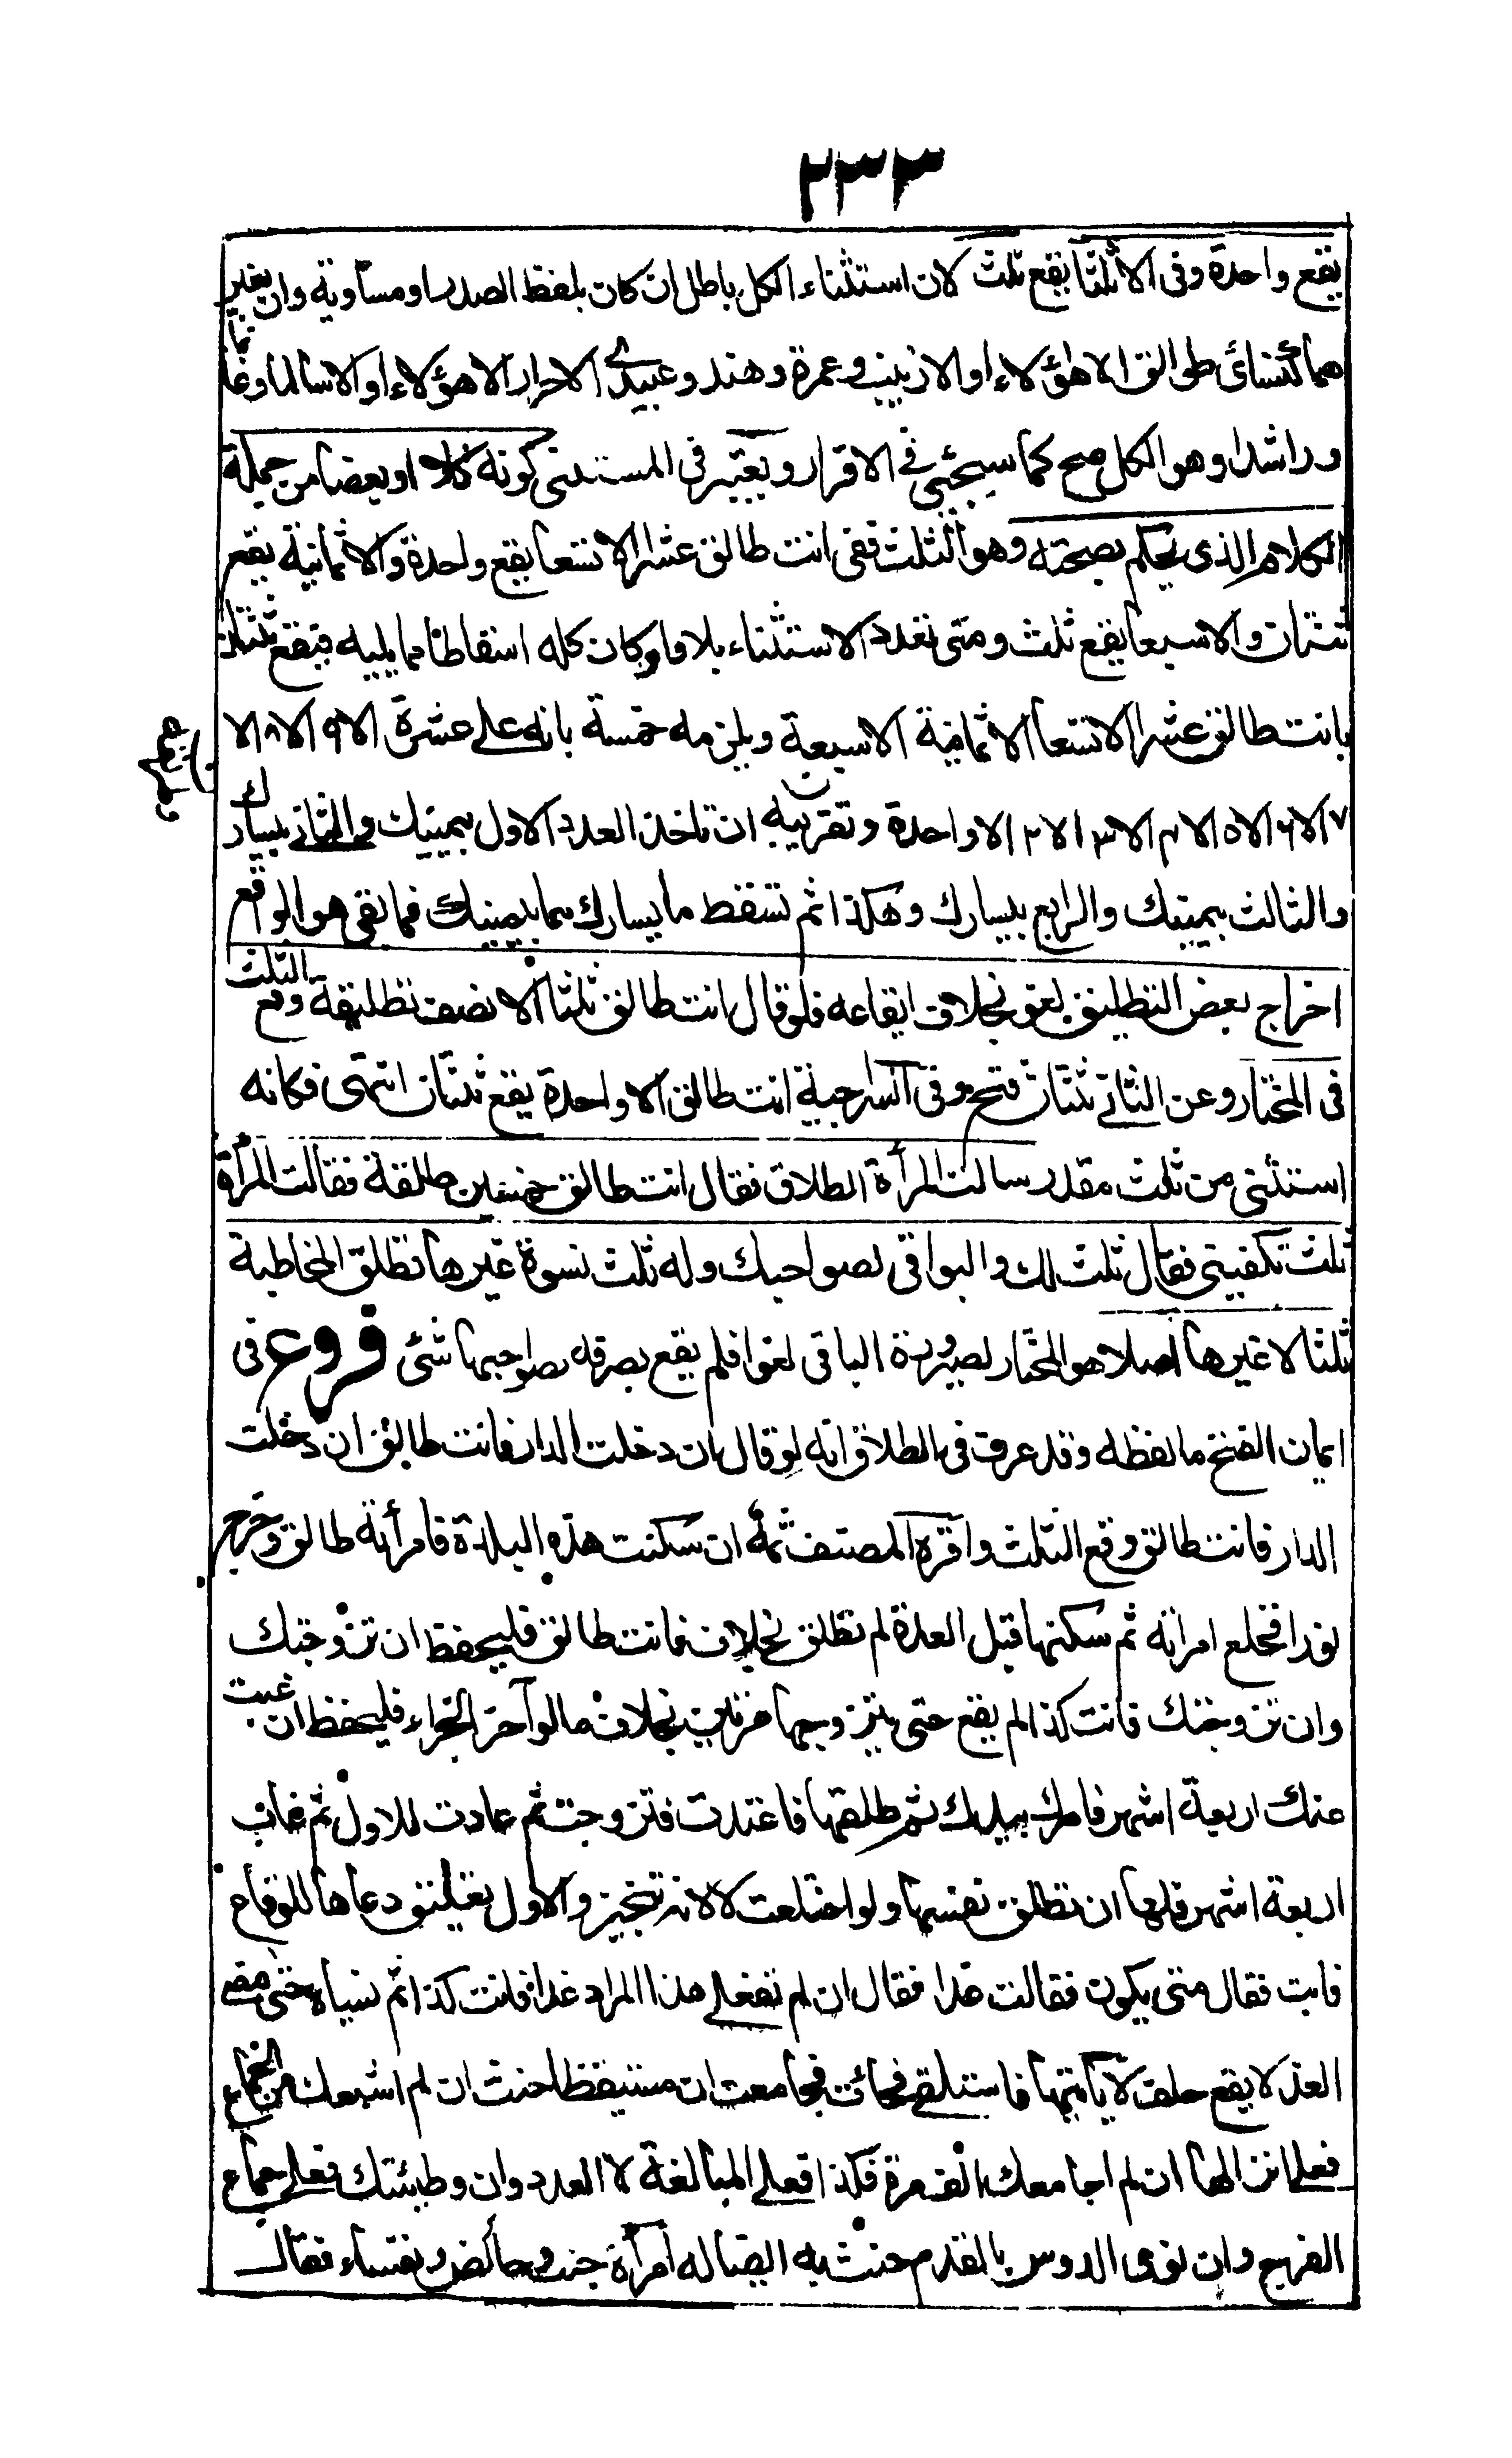 ٢٣٣
يقع واحدة وفى الا ثلثا يقع ثلث لان استثناء الكل باطل ان كان بلفظ الصدر او مساويه وان بغير
هما كنسائى طوالق الا هؤلاء او الا زينب وعمرة وهند وعبيدى الاحرار الا هؤلاء او الا سالما وغانما
وراشدا وهو الكل صح كما سيجئ فى الاقرار ويعتبر فى المستثنى كونه كلا او بعضا من جملة
الكلام الذى يحكم بصحته وهو الثلث ففى انت طالق عشرا الا تسعا يقع واحدة والا ثمانية يقع
ثنتان والا سبعا يقع ثلث ومتى تعدد الاستثناء بلا واو كان كله اسقاطا مما يليه فيقع ثنتان
بانت طالق عشرا الا تسعا الا ثمانية الا سبعة ويلزمه خمسة بانه على عشرة الا ٩ الا ٨ الا
٧ الا ٦ الا ٥ الا ٤ الا ٣ الا ٢ الا واحدة وتقريبه ان تاخذ العدد الاول بيمينك والثانى بيسارك
والثالث بيمينك والرابع بيسارك وهكذا ثم تسقط ما بيسارك مما بيمينك فما بقى هو الواقع
اخراج بعض التطليق لغو بخلاف ايقاعه فلو قال انت طالق ثلثا الا نصف تطليقة وقع الثلث
فى المختار وعن الثانى ثنتان فتح وفى السراجية انت طالق الا واحدة يقع ثنتان انتهى فكانه
استثنى من ثلث مقدر سالت المرأة الطلاق فقال انت طالق خمسين طلقة فقالت المرأة
ثلث تكفينى فقال ثلث لك والبواقى لصواحبك وله ثلث نسوة غيرها تطلق المخاطبة
ثلثا لا غيرها اصلا هو المختار لصيرورة الباقى لغوا فلم يقع بصرفه لصواحبها شئ فروع فى
ايمان الفتح ما لفظه وقد عرف فى الطلاق انه لو قال ان دخلت الدار فانت طالق ان دخلت
الدار فانت طالق وقع الثلث واقره المصنف ثمه ان سكنت هذه البلدة فامرأته طالق وخرج
فورا فخلع امراته ثم سكنها قبل العدة لم تطلق بخلاف فانت طالق فليحفظ ان تزوجتك
وان تزوجتك فانت كذا لم يقع حتى يتزوجها مرتين بخلاف ما لو آخر الجزاء فليحفظ ان غبت
عنك اربعة اشهر فامرك بيدك ثم طلقها فاعتدت فتزوجت ثم عادت للاول ثم غاب
اربعة اشهر فلها ان تطلق نفسها ولو اختلعت لا لانه تنجيز والاول تعليق دعاها للوقاع
فابت فقال متى يكون فقالت غدا فقال ان لم تفعلى هذا المراد غدا فانت كذا ثم نسياه حتى مضى
الغد لا يقع حلف لا ياتيها فاستلقى فجائت فجامعت ان مستيقظا حنث ان لم اشبعك من الجماع
فعلى انزالها ان لم اجامعك الف مرة فكذا فعلى المبالغة لا العدد وان وطئتك فعلى جماع
الفرج وان نوى الدوس بالقدم حنث به ايضا له امرأة جنب وحائض ونفساء فقال